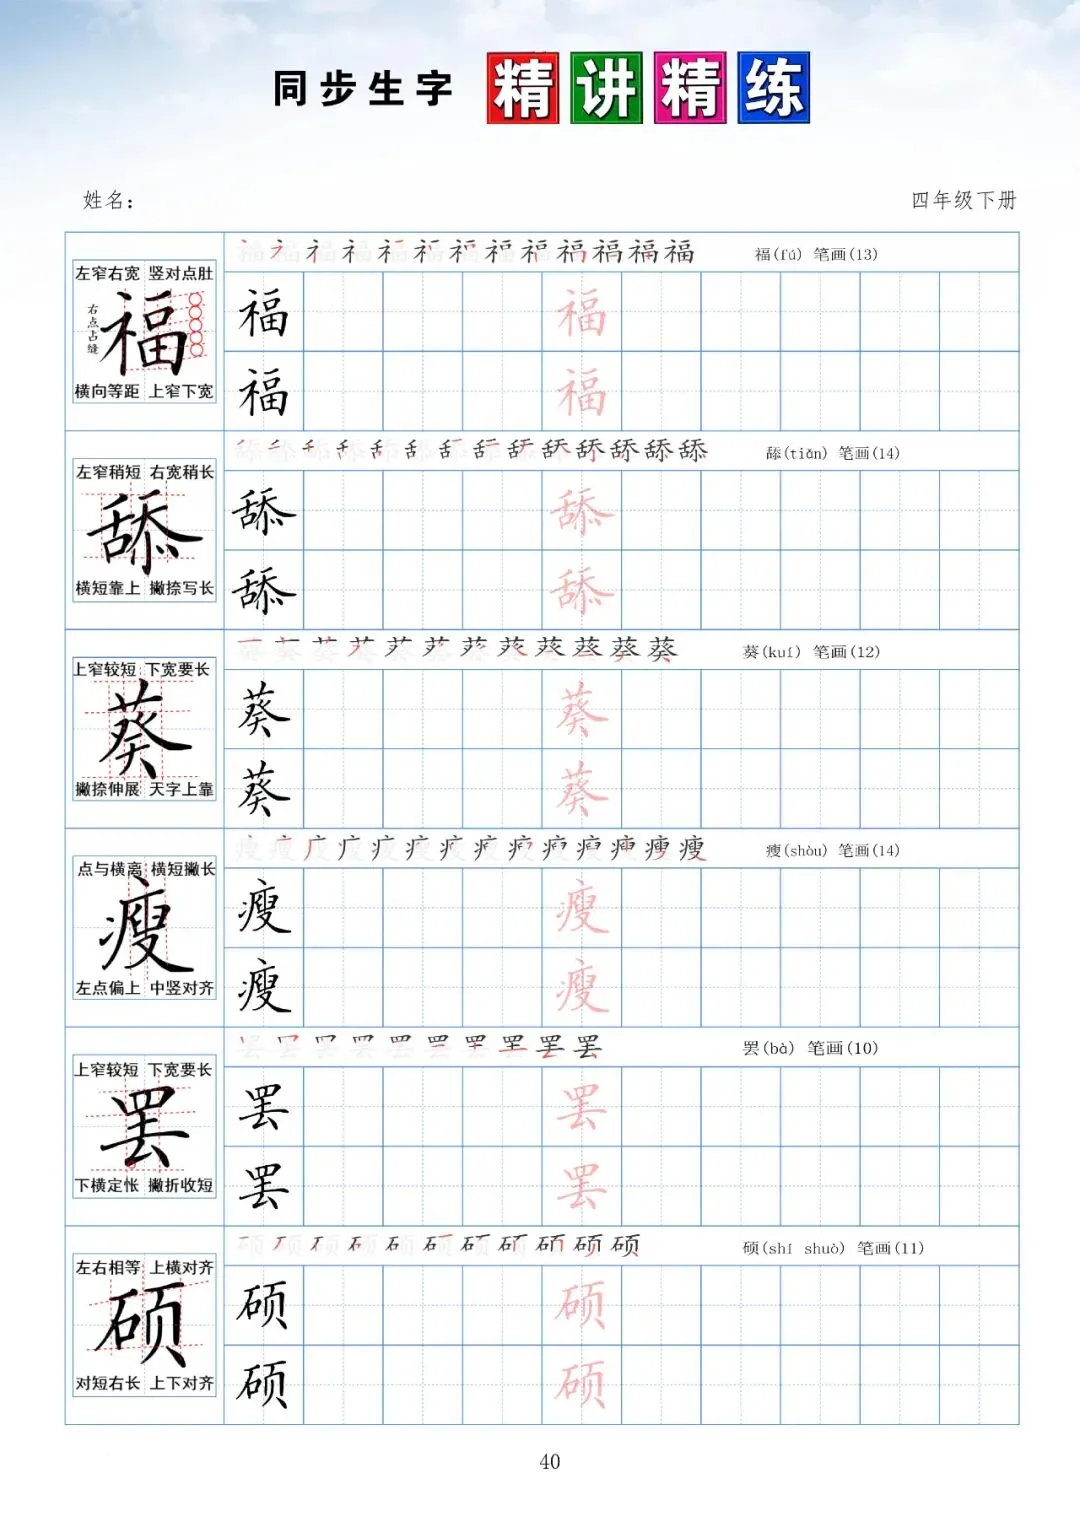 同步生字 精讲精练
姓名： 四年级下册
左窄右宽 竖对点肚
右点占缝
福
横向等距 上窄下宽
福 福 福 福 福 福 福 福 福(fú) 笔画(13)
福 福
福 福
左窄稍短 右宽稍长
舔
横短靠上 撇捺写长
舔(tiǎn) 笔画(14)
舔 舔
舔 舔
上窄较短 下宽要长
葵
撇捺伸展 天字上靠
葵(kuí) 笔画(12)
葵 葵
葵 葵
点与横离 横短撇长
瘦
左点偏上 中竖对齐
瘦(shòu) 笔画(14)
瘦 瘦
瘦 瘦
上窄较短 下宽要长
罢
下横定怅 撇折收短
罢(bà) 笔画(10)
罢 罢
罢 罢
左右相等 上横对齐
硕
对短右长 上下对齐
硕(shí shuò) 笔画(11)
硕 硕
硕 硕
40